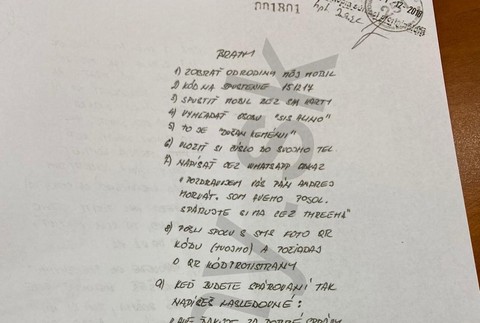 001801
12-2019
BRATM
1) ZOBRAŤ OD RODINY MÔJ MOBIL
2) KÓD NA SPUSTENIE 151214
3) SPUSTIŤ MOBIL BEZ SIM KARTY
4) VYHĽADAŤ OSOBU "SIS ALINO"
5) TO JE "DUŠAN KEMÉNYI"
6) ULOŽIŤ SI ČÍSLO DO SVOJHO TEL.
7) NAPÍSAŤ CEZ WHATSAPP ODKAZ
"POZDRAVUJEM VÁS PÁN ANDREJ
HORVÁT. SOM AVEHO POSOL.
SPÁRUJTE SI MA CEZ THREEMA"
8) POŠLI SPOLU S SMS FOTO QR
KÓDU (TVOJHO) A POŽIADAJ
O QR KÓD PROTISTRANY
9) KEĎ BUDETE SPÁROVANÍ TAK
NAPÍŠEŠ NASLEDOVNÉ:
JV.SK